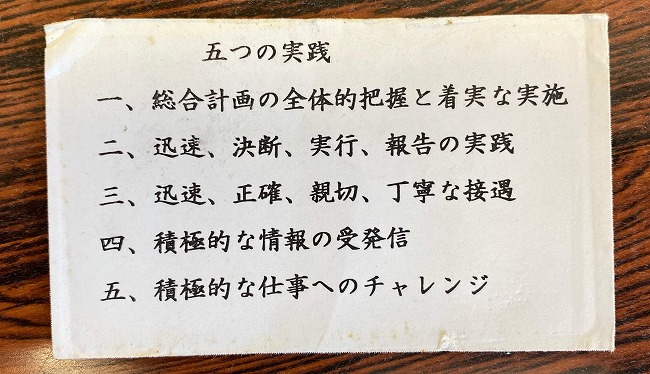 五つの実践
一、総合計画の全体的把握と着実な実施
二、迅速、決断、実行、報告の実践
三、迅速、正確、親切、丁寧な接遇
四、積極的な情報の受発信
五、積極的な仕事へのチャレンジ